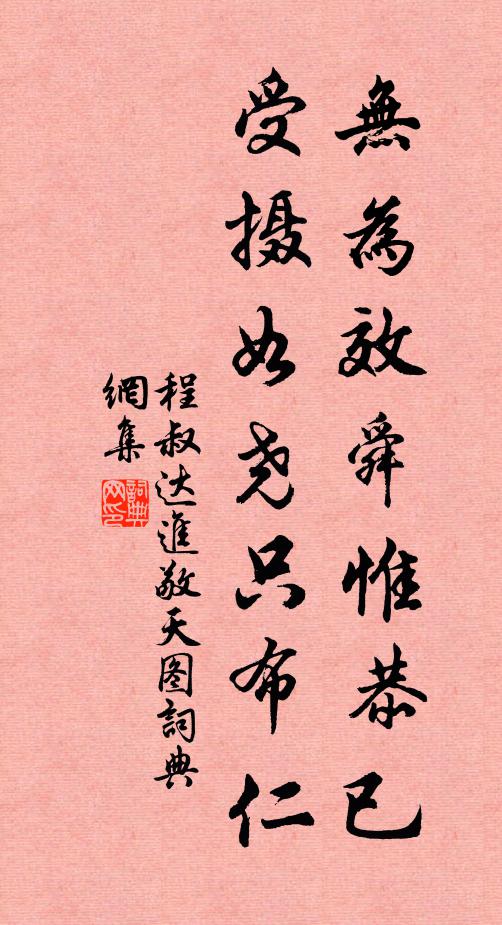 無為效舜惟恭已
受摄如尧只布仁
程叔达進敬天图詞典
網集
詞典
网印